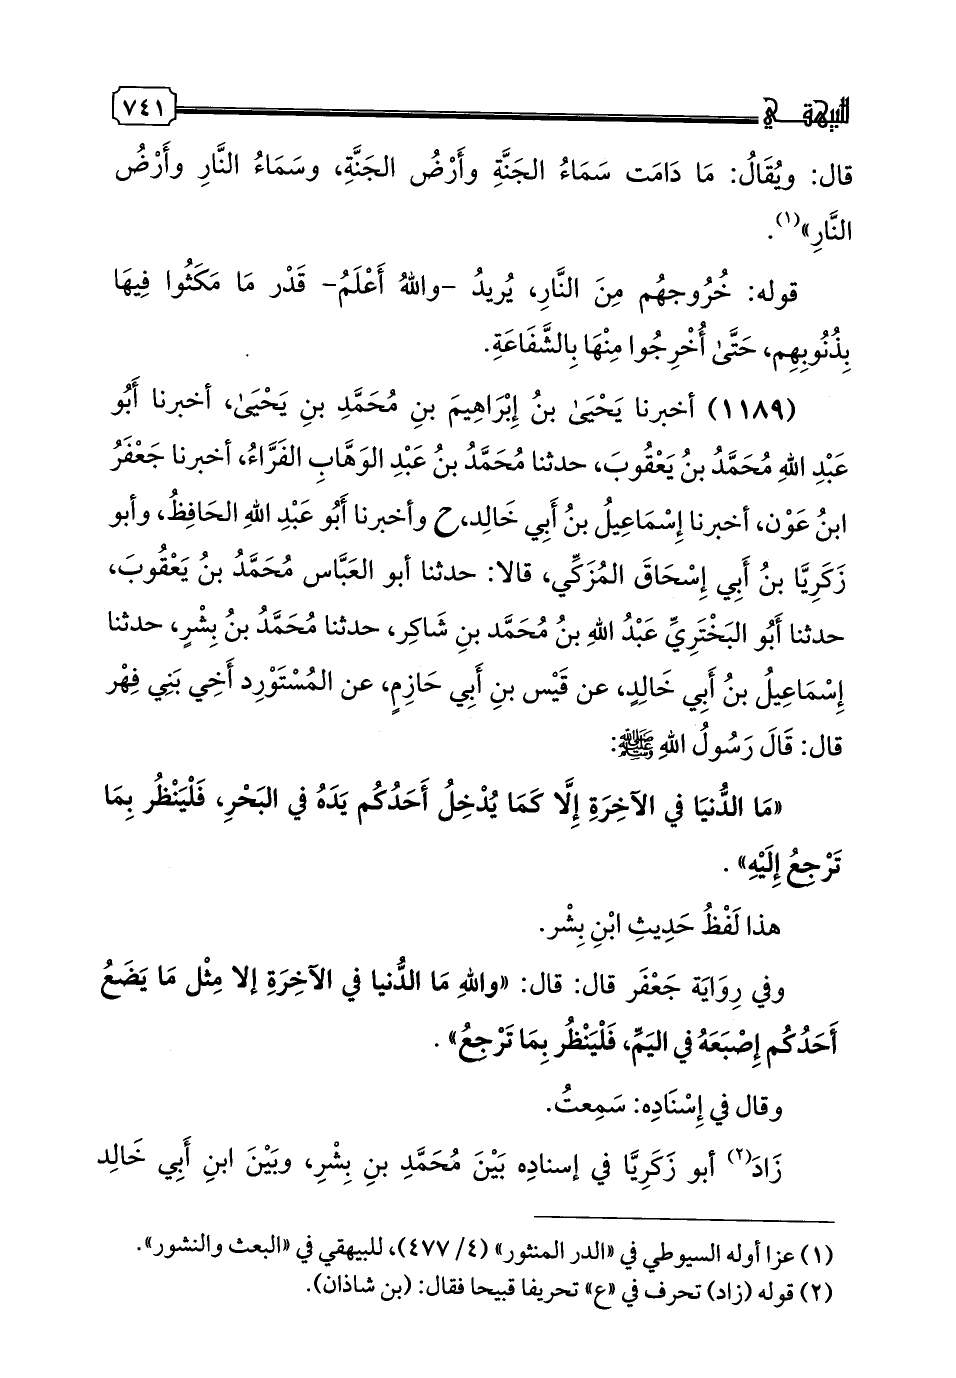 للبيهقي ٧٤١
قال: ويُقَالُ: مَا دَامَت سَمَاءُ الجَنَّةِ وأَرْضُ الجَنَّةِ، وسَمَاءُ النَّارِ وأَرْضُ
النَّارِ»(١).
قوله: خُرُوجهُم مِنَ النَّارِ، يُرِيدُ -واللهُ أَعْلَمُ- قَدْر مَا مَكَثُوا فِيهَا
بِذُنُوبِهِم، حَتَّىٰ أُخْرِجُوا مِنْهَا بِالشَّفَاعَةِ.
(١١٨٩) أخبرنا يَحْيَىٰ بنُ إِبْرَاهِيمَ بنِ مُحَمَّدِ بنِ يَحْيَىٰ، أخبرنا أَبُو
عَبْدِ اللهِ مُحَمَّدُ بنُ يَعْقُوبَ، حدثنا مُحَمَّدُ بنُ عَبْدِ الوَهَّابِ الفَرَّاءُ، أخبرنا جَعْفَرُ
ابنُ عَوْن، أخبرنا إِسْمَاعِيلُ بنُ أَبِي خَالِد، ح وأخبرنا أَبُو عَبْدِ اللهِ الحَافِظُ، وأبو
زَكَرِيَّا بنُ أَبِي إِسْحَاقَ المُزَكِّي، قالا: حدثنا أبو العَبَّاس مُحَمَّدُ بنُ يَعْقُوبَ،
حدثنا أَبُو البَخْتَرِيِّ عَبْدُ اللهِ بنُ مُحَمَّد بنِ شَاكِر، حدثنا مُحَمَّدُ بنُ بِشْرٍ، حدثنا
إِسْمَاعِيلُ بنُ أَبِي خَالِدٍ، عن قَيْس بنِ أَبِي حَازِمٍ، عن المُسْتَوْرِد أَخِي بَنِي فِهْر
قال: قَالَ رَسُولُ اللهِ ﷺ:
«مَا الدُّنيَا في الآخِرَةِ إِلَّا كَمَا يُدْخِلُ أَحَدُكُم يَدَهُ في البَحْرِ، فَلْيَنْظُر بِمَا
تَرْجِعُ إِلَيْهِ» .
هذا لَفْظُ حَدِيثِ ابْنِ بِشْر.
وفي رِوَايَة جَعْفَر قال: قال: «واللهِ مَا الدُّنيا في الآخِرَةِ إلا مِثْل مَا يَضَعُ
أَحَدُكُم إِصْبَعَهُ في اليَمِّ، فَلْيَنْظُر بِمَا تَرْجِعُ» .
وقال في إِسْنَادِه: سَمِعتُ.
زَادَ(٢) أبو زَكَرِيَّا في إسنادِه بَيْنَ مُحَمَّدِ بنِ بِشْرِ، وبَيْنَ ابنِ أَبِي خَالِد
(١) عزا أوله السيوطي في «الدر المنثور» (٤/ ٤٧٧)، للبيهقي في «البعث والنشور».
(٢) قوله (زاد) تحرف في «ع» تحريفا قبيحا فقال: (بن شاذان).